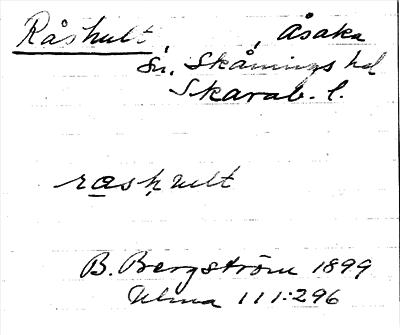 Råshult, Åsaka
sn, Skånings hd
Skarab. l.
råshult
B. Bergström 1899
Ulma 111:296